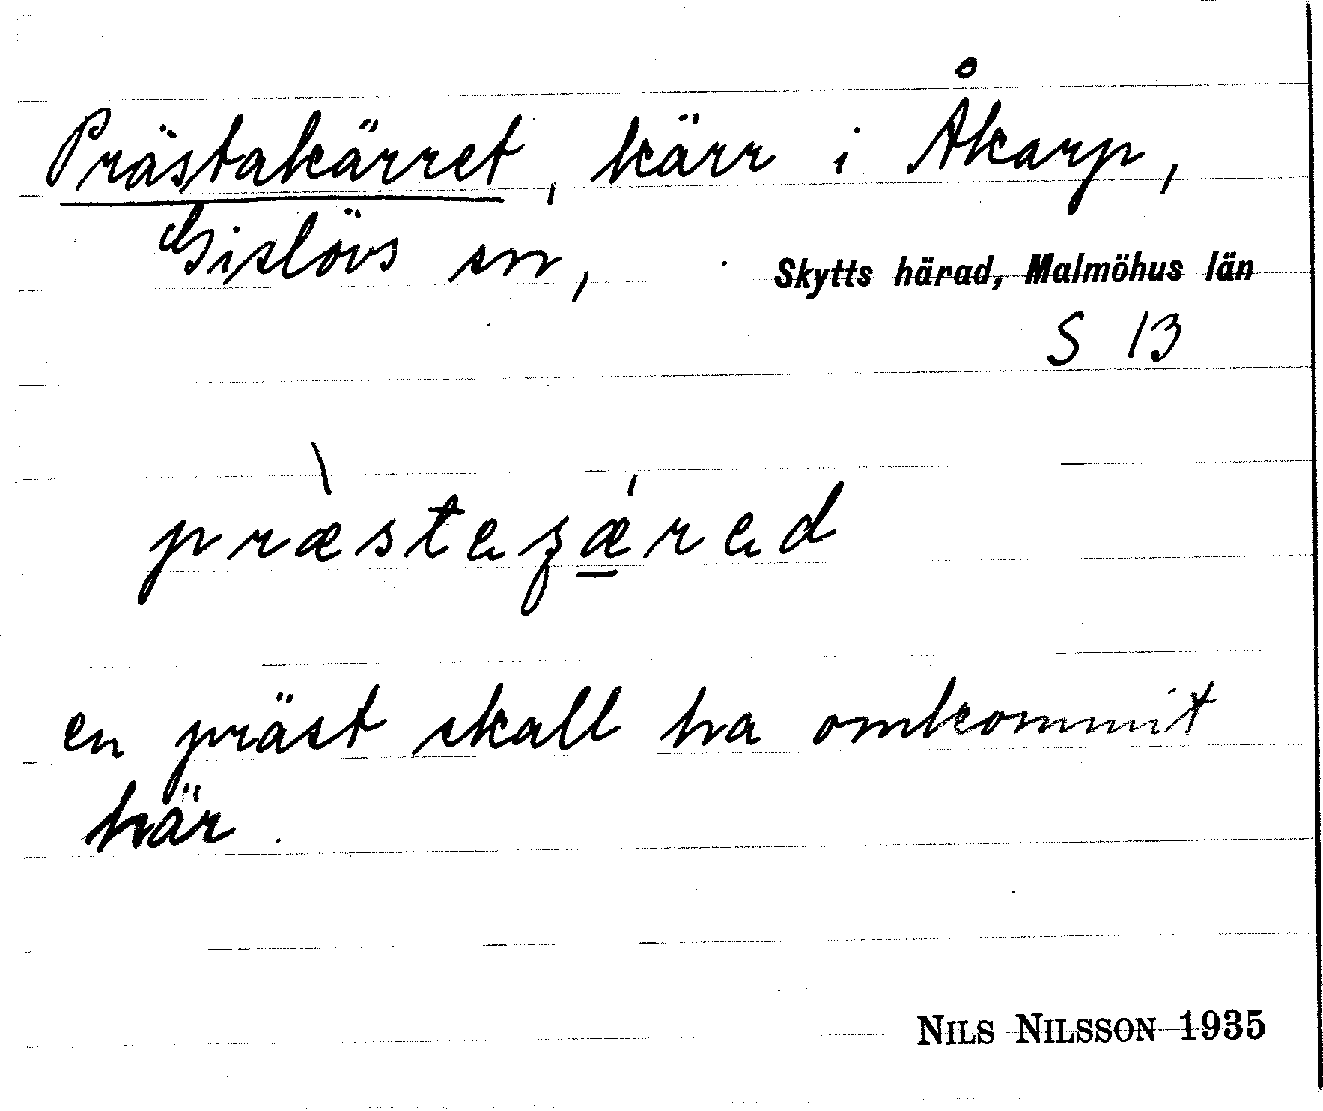 Prästakärret, kärr i Åkarp,
Gislövs sn, Skytts härad, Malmöhus län
S 13
en präst skall ha omkommit
här.
NILS NILSSON 1935